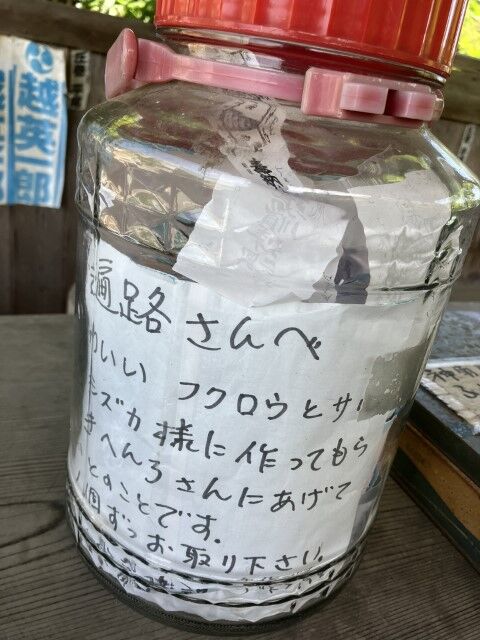 越英一郎
遍路さんへ
わいい フクロウとサル
ミズカ様に作ってもら
き へんろさんにあげて
とのことです。
個ずつお取り下さい。